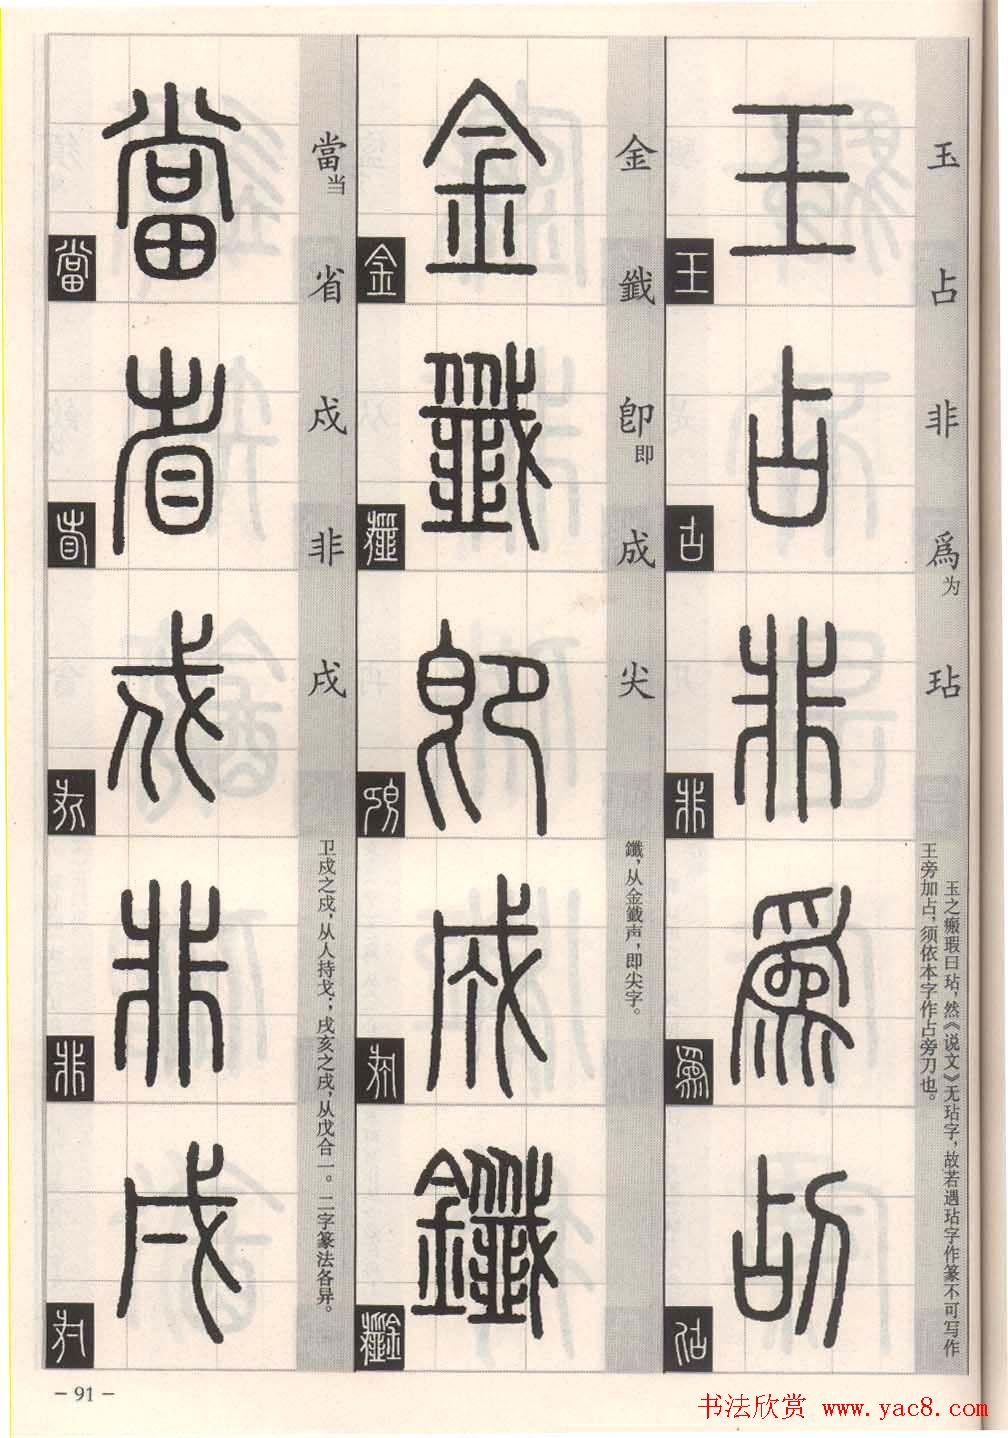 玉占非爲为玷
王占非爲刮
玉之瘢瑕曰玷，然《说文》无玷字，故若遇玷字作篆不可写作
王旁加占，须依本字作占旁刀也。
金鑯卽即成尖
金韱卽成鑯
鑯，从金韱声，即尖字。
當当省戍非戌
當省戍非戌
卫戍之戍，从人持戈；戌亥之戌，从戊合一。二字篆法各异。
－91－
书法欣赏 www.yac8.com